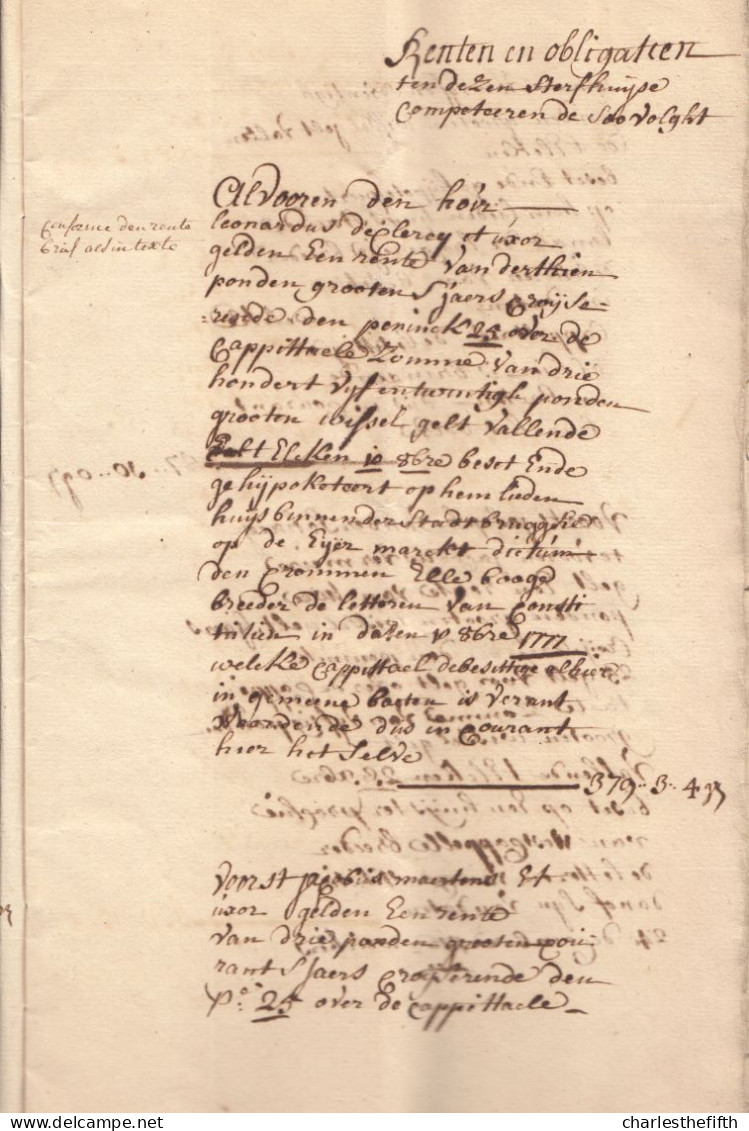 Renten en obligatien
ten dezen sterfhuijse
Competeeren de soo volght
Alvooren den hoir
Conforme den rente
brief als in texte
leonardus de Clercq et uxor
gelden Een rente van derthien
ponden grooten sjaers Croijse-
=rende den peninck 25 over de
Cappittaele Somme van drie
hondert vijf entwintigh ponden
grooten wissel gelt vallende
Elcken 10 8bre beset Ende
gehijpotekeert op hemlieden
huijs binnen der Stadt brugghe
op de Eijer marckt dictum
den Crommen Elle booge
breeder de letteren van Consti
tutien in daten 10 8bre 1777
welcke Cappittael debesittige alhier
in gemeene baeten is verant
woordende dus in Courant
hier het selve
379 .. 3 .. 4 gr
Voorst jacobus maertens Et
uxor gelden Een rente
van drie ponden grooten cou
rant sjaers Croijserende den
p.e 25 over de cappittaele
charlesthefifth